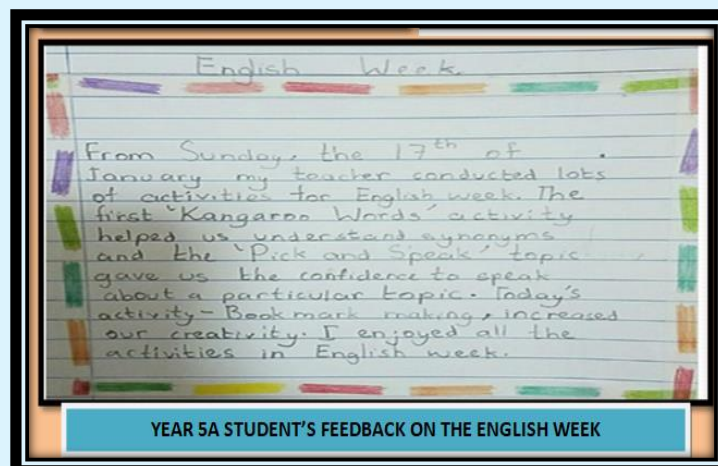 English Week.
From Sunday, the 17th of
January my teacher conducted lots
of activities for English week. The
first 'Kangaroo Words' activity
helped us understand synonyms
and the 'Pick and Speak' topic
gave us the confidence to speak
about a particular topic. Today's
activity - Book mark making, increased
our creativity. I enjoyed all the
activities in English week.
YEAR 5A STUDENT'S FEEDBACK ON THE ENGLISH WEEK